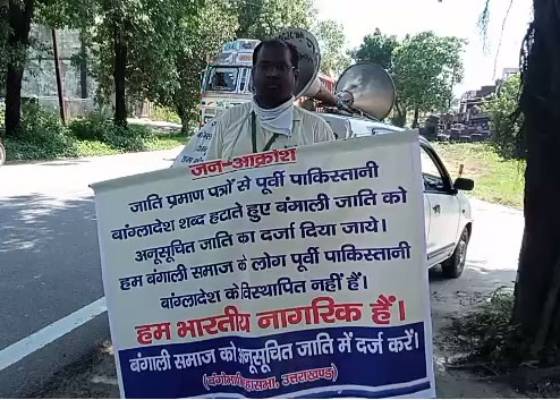 जन-आक्रोश
जाति प्रमाण पत्रों से पूर्वी पाकिस्तानी
बांग्लादेश शब्द हटाते हुए बंगाली जाति को
अनुसूचित जाति का दर्जा दिया जाये।
हम बंगाली समाज के लोग पूर्वी पाकिस्तानी
बांग्लादेश के विस्थापित नहीं हैं।
हम भारतीय नागरिक हैं।
बंगाली समाज को अनुसूचित जाति में दर्ज करें।
उत्तराखण्ड)